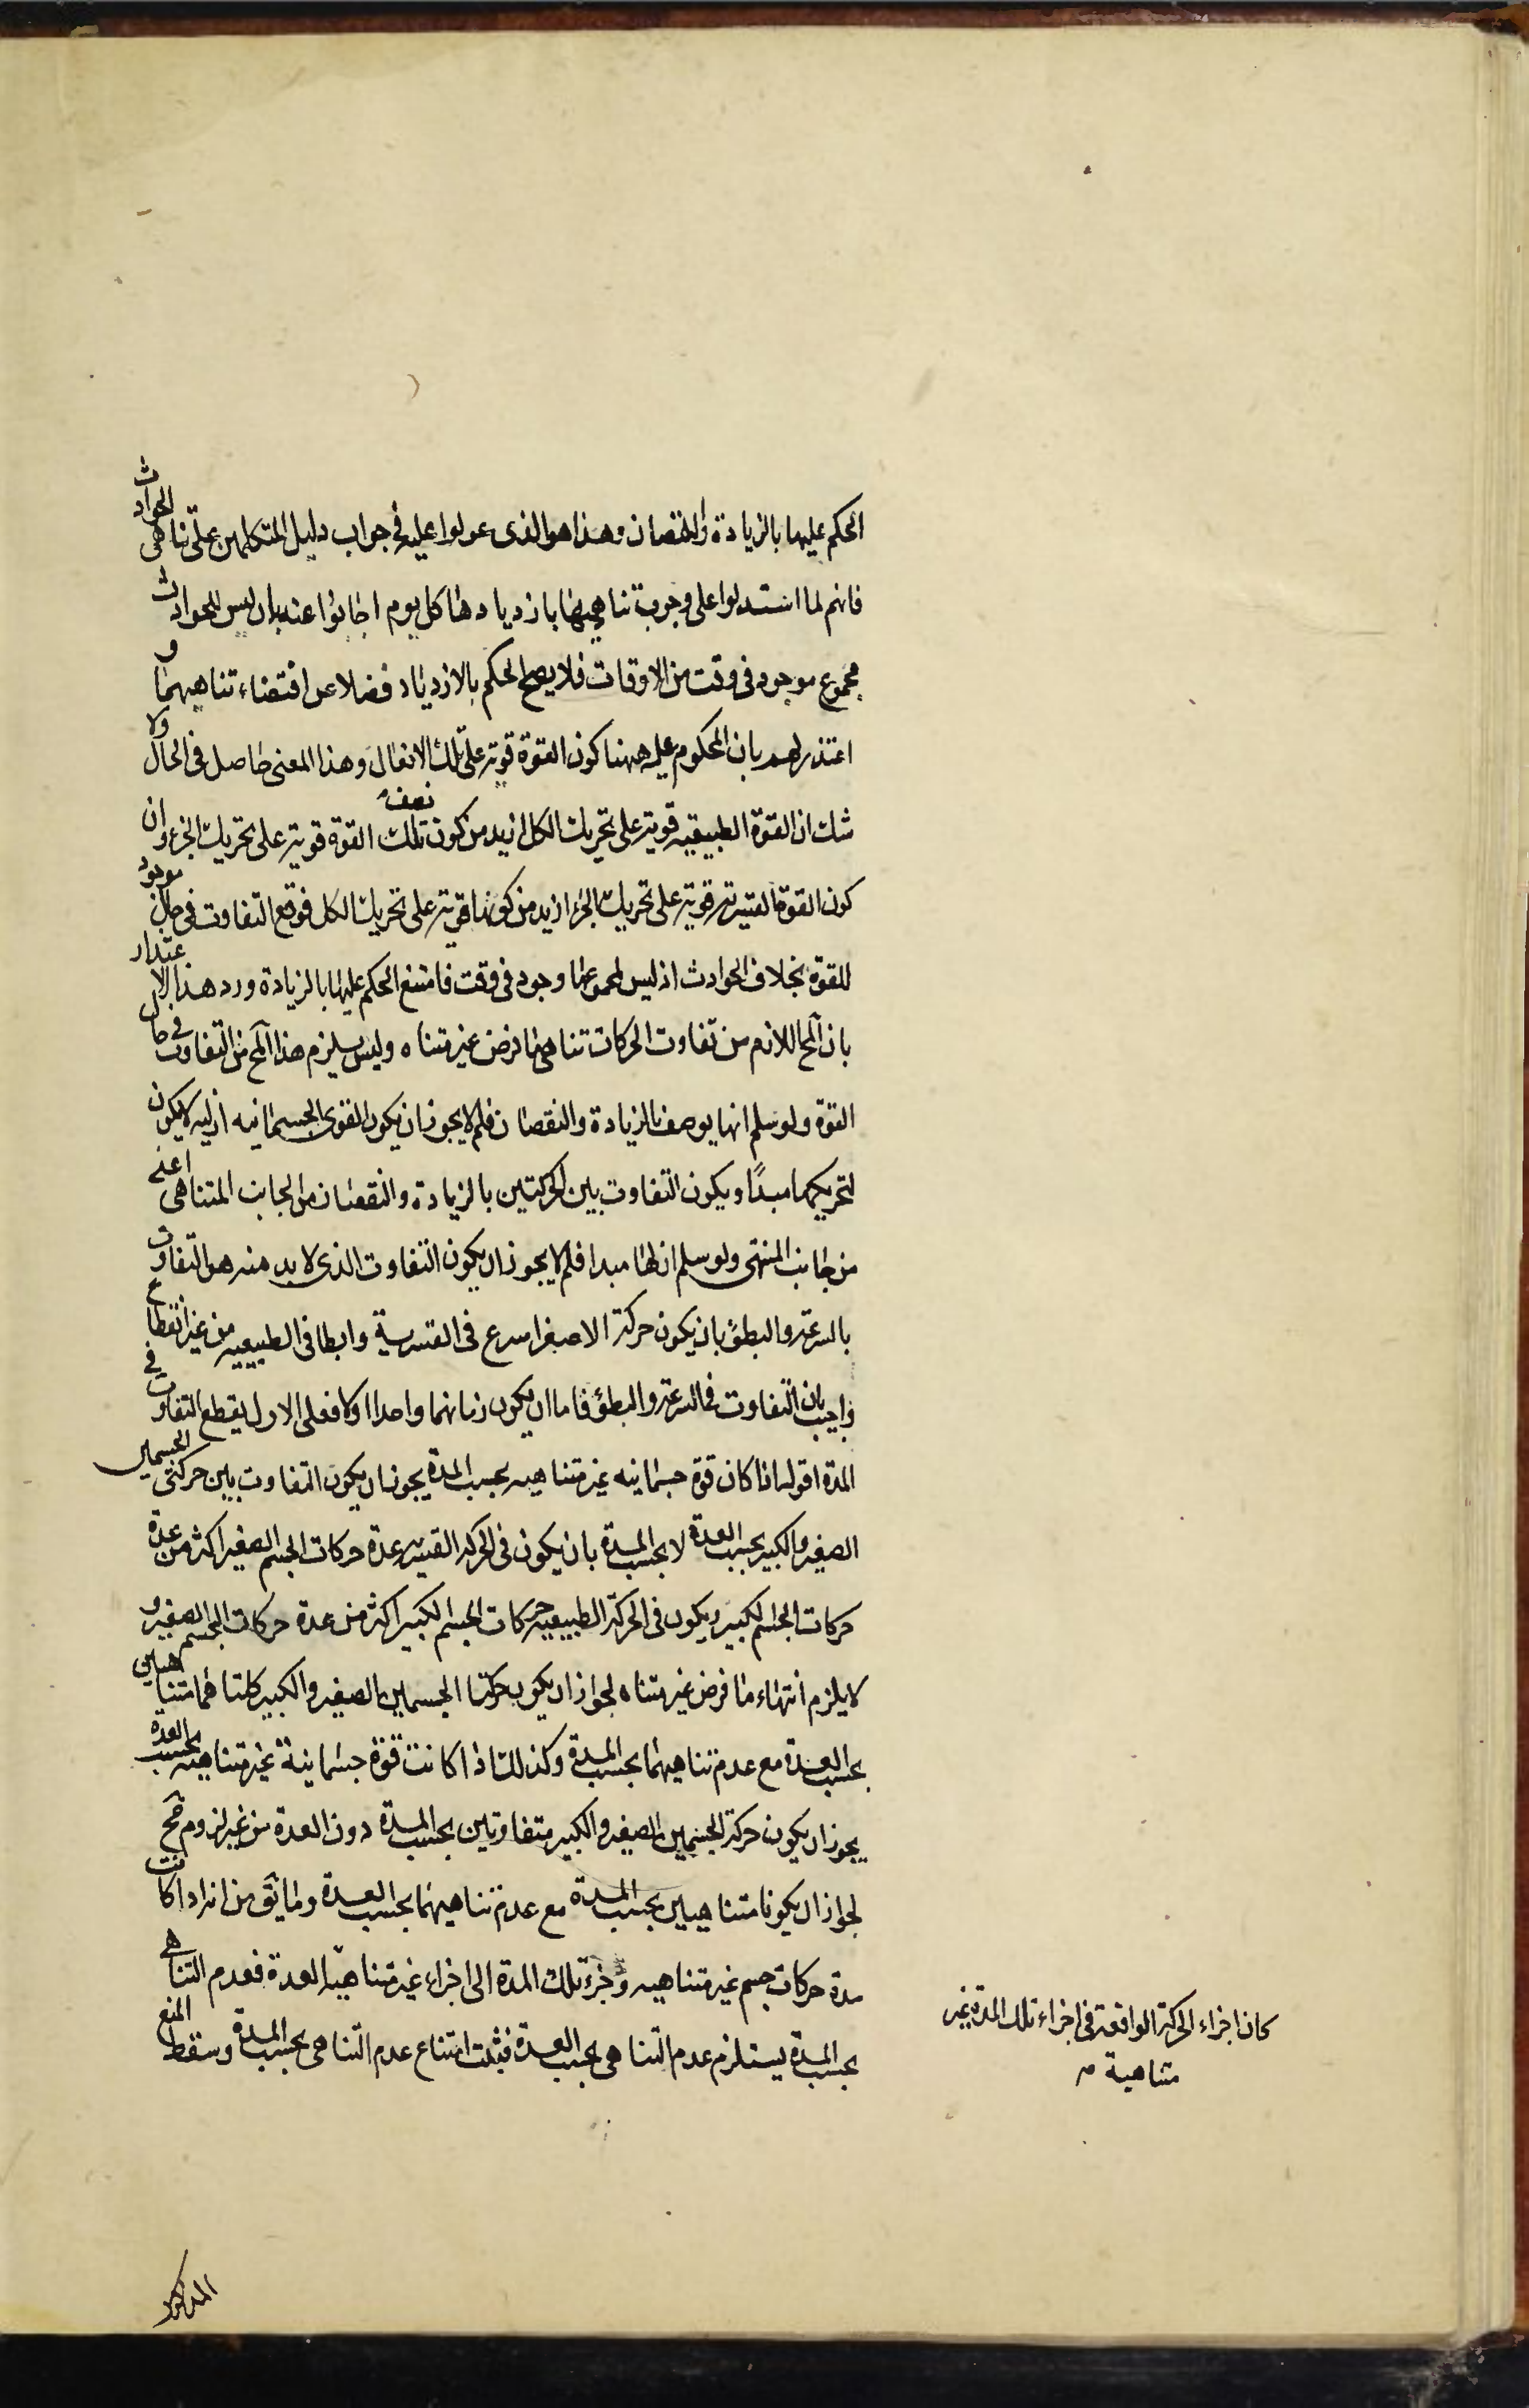 الحكم عليها بالزيادة والنقصان وهذا هو الذى عولوا عليه فى جواب دليل المتكلمين على تناهى الحوادث
فانهم لما استدلوا على وجوب تناهيها بازديادها كل يوم اجابوا عنه بان ليس للحوادث
مجموع موجود فى وقت من الاوقات فلا يصح الحكم بالازدياد فضلا عن اقتضاء تناهيهما و
اعتذر لهم بان المحكوم عليه ههنا كون القوة قوية على تلك الافعال وهذا المعنى حاصل فى الحال ولا
شك ان القوة الطبيعيه قوية على تحريك الكل ازيد من كون نصف تلك القوة قوية على تحريك الجزء وان
كون القوة القسرية قوية على تحريك الجزء ازيد من كونها قوية على تحريك الكل فوقع التفاوت فى حال موجود
للقوة بخلاف الحوادث اذ ليس لمجموعها وجود فى وقت فامتنع الحكم عليها بالزيادة ورد هذا الاعتذار
بان المح اللازم من تفاوت الحركات تناهى ما فرض غير متناه وليس يلزم هذا المح من التفاوت فى حال
القوة ولو سلم انها يوصف بالزيادة والنقصان فلم لا يجوز ان يكون القوى الجسمانيه ازليه لا يكون
لتحريكهما مبدأ ويكون التفاوت بين الحركتين بالزيادة والنقصان من الجانب المتناهى اعنى
من جانب المنتهى ولو سلم ان لها مبدا فلم لا يجوز ان يكون التفاوت الذى لا بد منه هو التفاوت
بالسرعة والبطؤ بان يكون حركة الاصغر اسرع فى القسرية وابطا فى الطبيعيه من غير انقطاع
واجيب بان التفاوت فى السرعة والبطؤ فاما ان يكون زمانهما واحدا اولا فعلى الاول يقطع التفاوت فى
المدة اقول اذا كان قوة جسمانيه غير متناهيه بحسب المدة يجوز ان يكون التفاوت بين حركتى الجسمين
الصغير والكبير بحسب العدة لا بحسب المدة بان يكون فى الحركة القسريه عدة حركات الجسم الصغير اكثر من عدة
حركات الجسم الكبير ويكون فى الحركة الطبيعيه حركات الجسم الكبير اكثر من عدة حركات الجسم الصغير و
لا يلزم انتهاء ما فرض غير متناه لجواز ان يكون حركتا الجسمين الصغير والكبير كلتاهما متناهيين
بحسب العدة مع عدم تناهيهما بحسب المدة وكذلك اذا كانت قوة جسمانية غير متناهيه بحسب العدة
يجوز ان يكون حركة الجسمين الصغير والكبير متفاوتين بحسب المدة دون العدة من غير لزوم مح
لجواز ان يكونا متناهيين بحسب المدة مع عدم تناهيهما بحسب العدة وما يق من انه اذا كانت
مدة حركات جسم غير متناهيه وجزء تلك المدة الى اجزاء غير متناهية العدة فعدم التناهى
بحسب المدة يستلزم عدم التناهى بحسب العدة فيثبت امتناع عدم التناهى بحسب المدة وسقط المنع
كان اجزاء الحركة الواقعة فى اجزاء تلك المدة غير
متناهية
المذكور